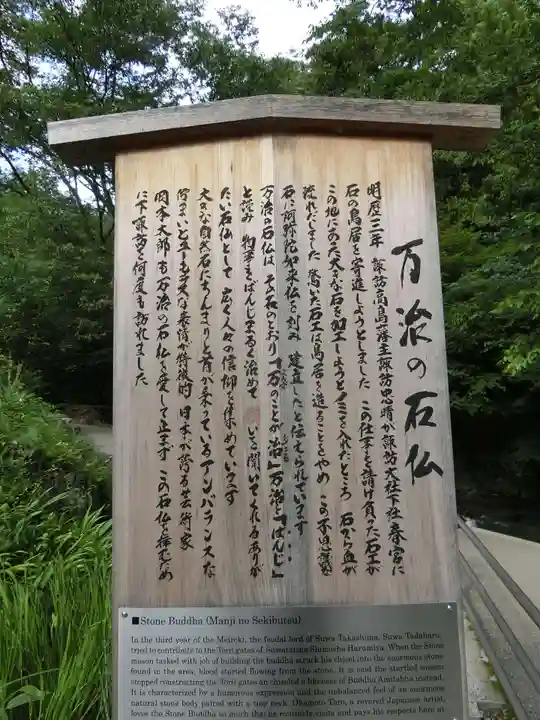 万治の石仏
明歴三年 諏訪高島藩主諏訪忠晴が諏訪大社下社春宮に
石の鳥居を寄進しようとしました この仕事を請け負った石工が
この地にあった大きな石を加工しようとノミを入れたところ 石から血が
流れだしました 驚いた石工は鳥居を造ることをやめ この不思議な
石に阿弥陀如来仏を刻み 建立したと伝えられています
万治の石仏は その名のとおり「万のことが治」万治と「ばんじ」
と読み 物事をばんじまるく治めて いを聞いてくれるありが
たい石仏として 広く人々の信仰を集めています
大きな自然石にちんまりと首が乗っているアンバランスな
何ともいえユーモラスな表情が特徴的 日本が誇る芸術家
岡本太郎も万治の石仏を愛して止まず この石仏を拝むため
に下諏訪を何度も訪れました
■Stone Buddha (Manji no Sekibutsu)
In the third year of the Meireki, the feudal lord of Suwa Takashima, Suwa Tadaharu,
tried to contribute to the Torii gates of Suwataisha Shimosha Harumiya. When the Stone
mason tasked with job of building the buddha struck his chisel into the enormous stone
found in the area, blood started flowing from the stone. It is said the startled mason
stopped constructing the Torii gates an chiseled a likeness of Buddha Amitabha instead.
It is characterized by a humorous expression and the unbalanced feel of an enormous
natural stone body paired with a tiny neck. Okamoto Taro, a revered Japanese artist,
loves the Stone Buddha so much that he constantly visits and pays his respects here at